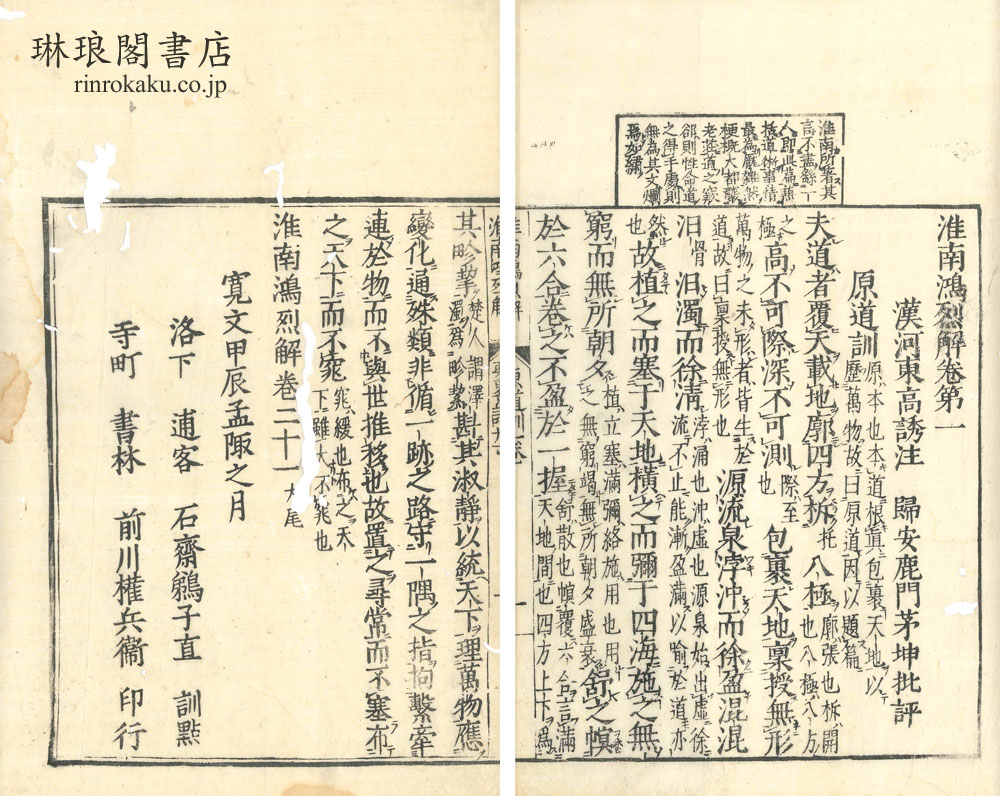 琳琅閣書店
rinrokaku.co.jp
淮南所著其
言不盡餘一
人即此篇蕪
梗概大都聯
老莊道之窾
郤則性命道
之得手處則
無為其文爛
爲如繡
淮南鴻烈解卷第一
漢河東高誘注 歸安鹿門茅坤批評
原道訓 原本也本道根眞包裹天地以歷萬物故曰原道因以題篇
夫道者覆天載地廓四方柝八極 廓張也柝開也八極八方
之極高不可際深不可測 際至也 包裹天地稟授無形
萬物之未形者皆生於道故曰稟授無形也 源流泉浡沖而徐盈混混
汩汩濁而徐淸 浡涌也沖虛也源泉始出虛徐流不止能漸盈滿以喻於道亦
然也 故植之而塞于天地橫之而彌于四海施之無
窮而無所朝夕 植立塞滿彌絡施用也用之無窮竭無所朝夕盛衰 舒之幎
於六合卷之不盈於一握 舒散也幎覆六合言滿天地間也四方上下爲
其畛挈 楚人謂澤濁爲畛挈 斟其淑靜以統天下理萬物應
變化通殊類非循一跡之路守一隅之指拘繫牽
連於物而不與世推移也故置之尋常而不塞布
之天下而不窕 窕緩也布之天下雖大不窕也
淮南鴻烈解卷二十一 大尾
寬文甲辰孟陬之月
洛下 逋客 石齋鵜子直 訓點
寺町 書林 前川權兵衞 印行